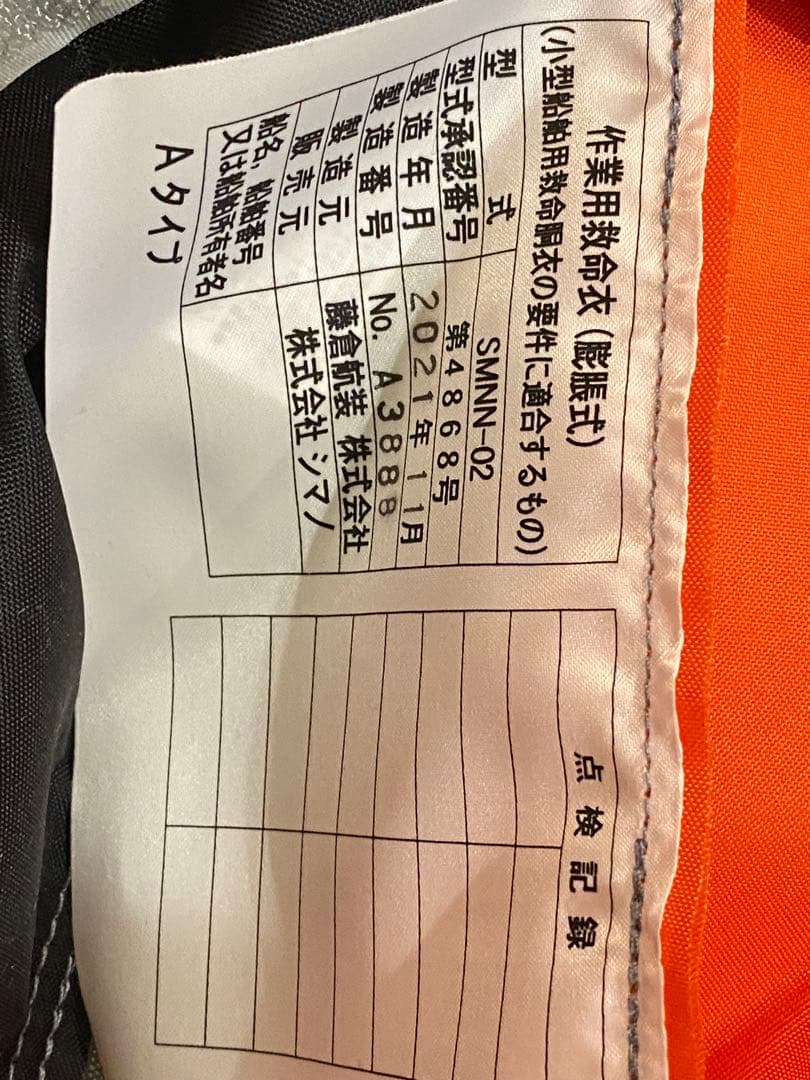 作業用救命衣(膨脹式)
(小型船舶用救命胴衣の要件に適合するもの)
型式 SMNN-02
型式承認番号 第4868号
製造年月 2021年11月
製造番号 No. A3888
製造元 藤倉航装 株式会社
販売元 株式会社シマノ
船名、船舶番号
又は船舶所有者名
Aタイプ
点検記録